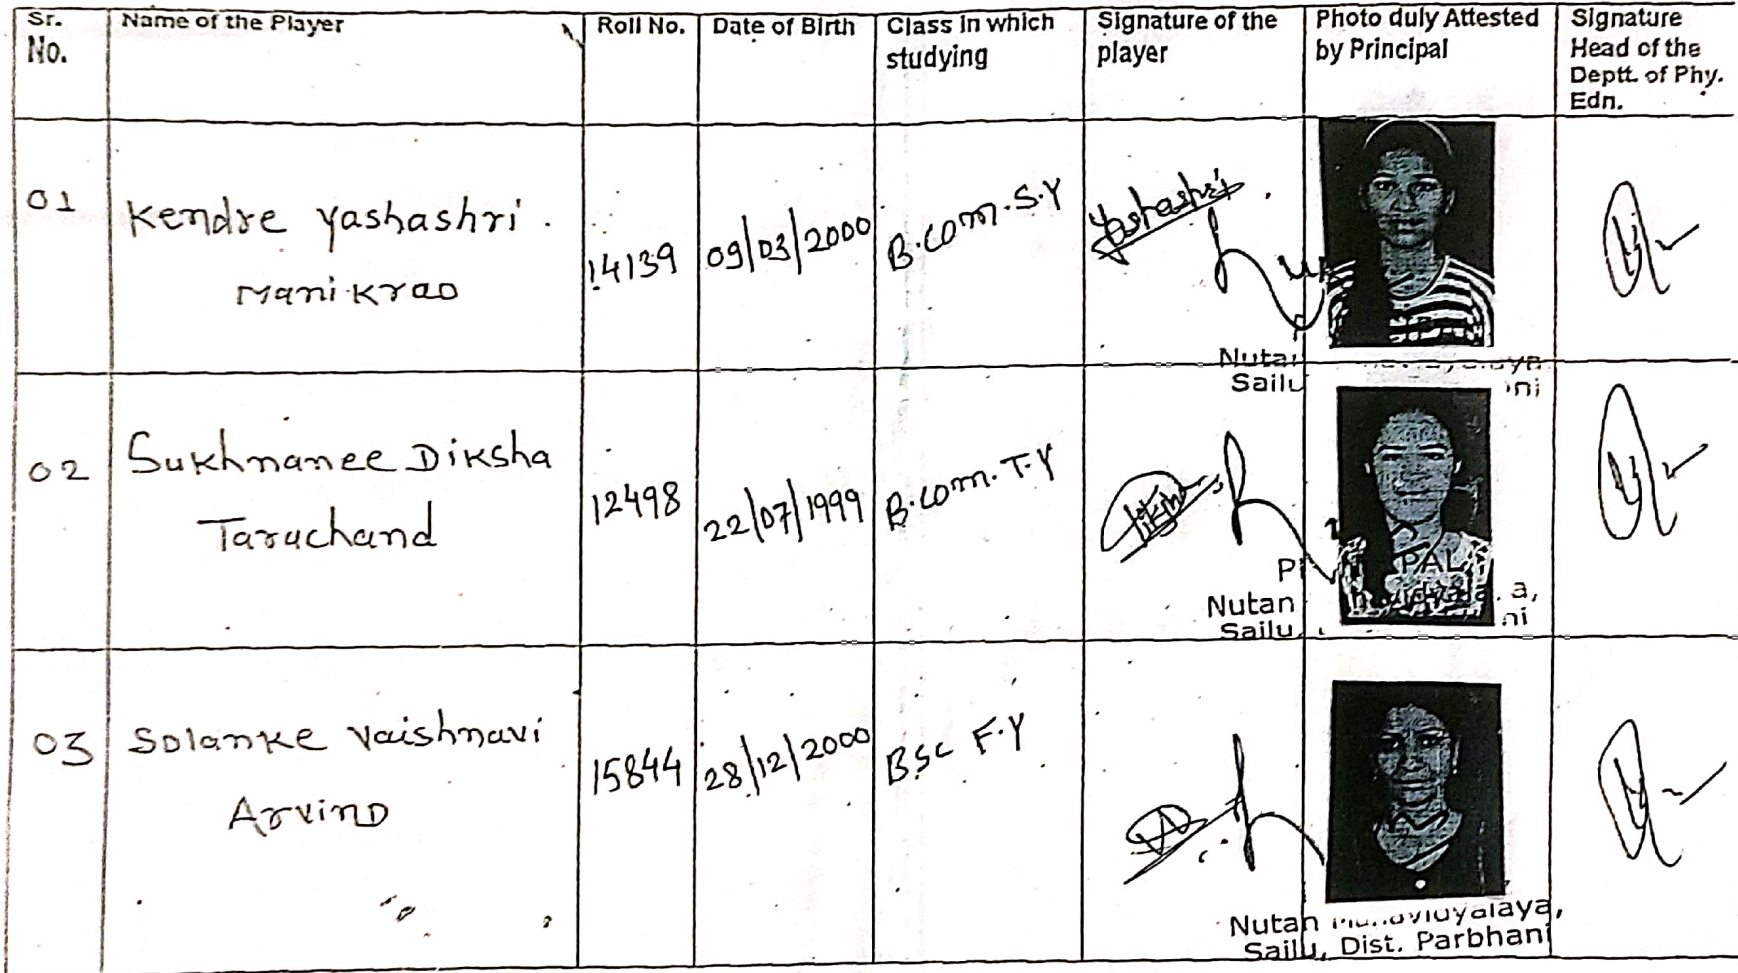 Sr.
No.
Name of the Player
Roll No.
Date of Birth
Class in which
studying
Signature of the
player
Photo duly Attested
by Principal
Signature
Head of the
Deptt. of Phy.
Edn.
01
Kendre Yashashri
Manikrao
14139
09/03/2000
B.com.S.Y
Yashashri
Sailu
02
Sukhnanee Diksha
Tarachand
12498
22/07/1999
B.com.T.Y
PAL
Nutan
Sailu
03
Solanke Vaishnavi
Arvind
15844
28/12/2000
BSC F.Y
Nutan Mahavidyalaya,
Sailu, Dist. Parbhani